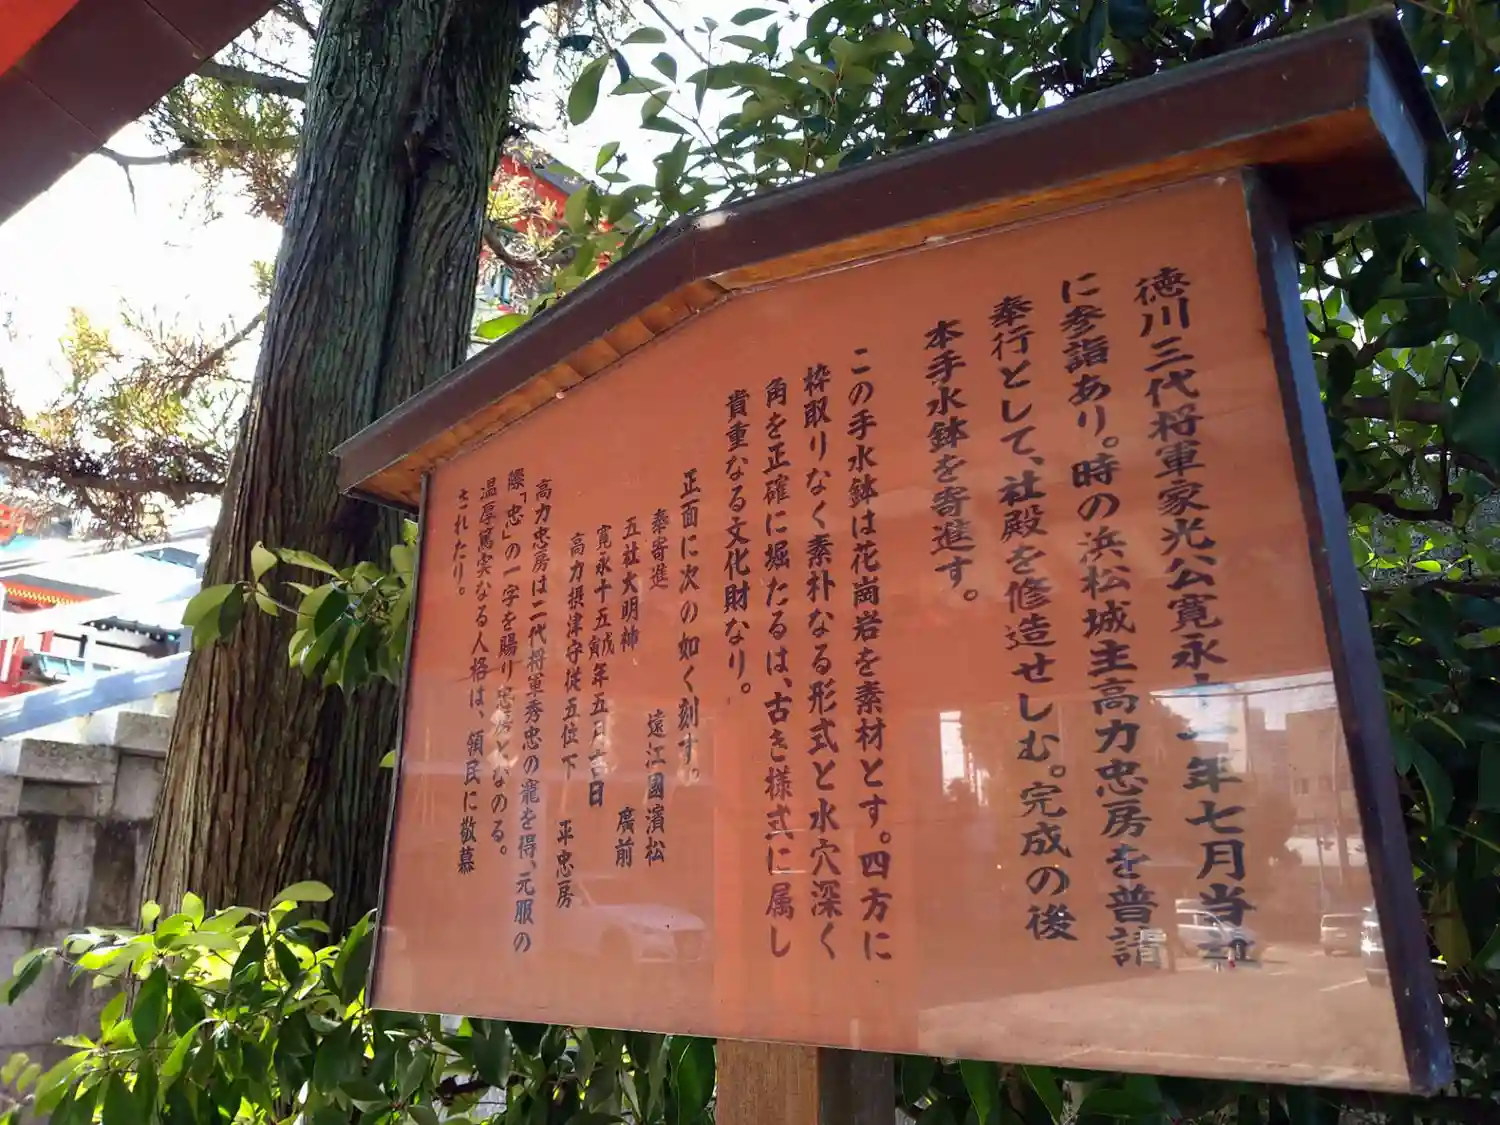 徳川三代将軍家光公寛永十一年七月当社
に参詣あり。時の浜松城主高力忠房を普請
奉行として、社殿を修造せしむ。完成の後
本手水鉢を寄進す。
この手水鉢は花崗岩を素材とす。四方に
枠取りなく素朴なる形式と水穴深く
角を正確に堀たるは、古き様式に属し
貴重なる文化財なり。
正面に次の如く刻す。
奉寄進　遠江國濱松
五社大明神　廣前
寛永十五戊寅年五日吉日
高力摂津守従五位下　平忠房
高力忠房は二代将軍秀忠の寵を得、元服の
際「忠」の一字を賜り忠房となのる。
温厚篤実なる人格は、領民に敬慕
されたり。